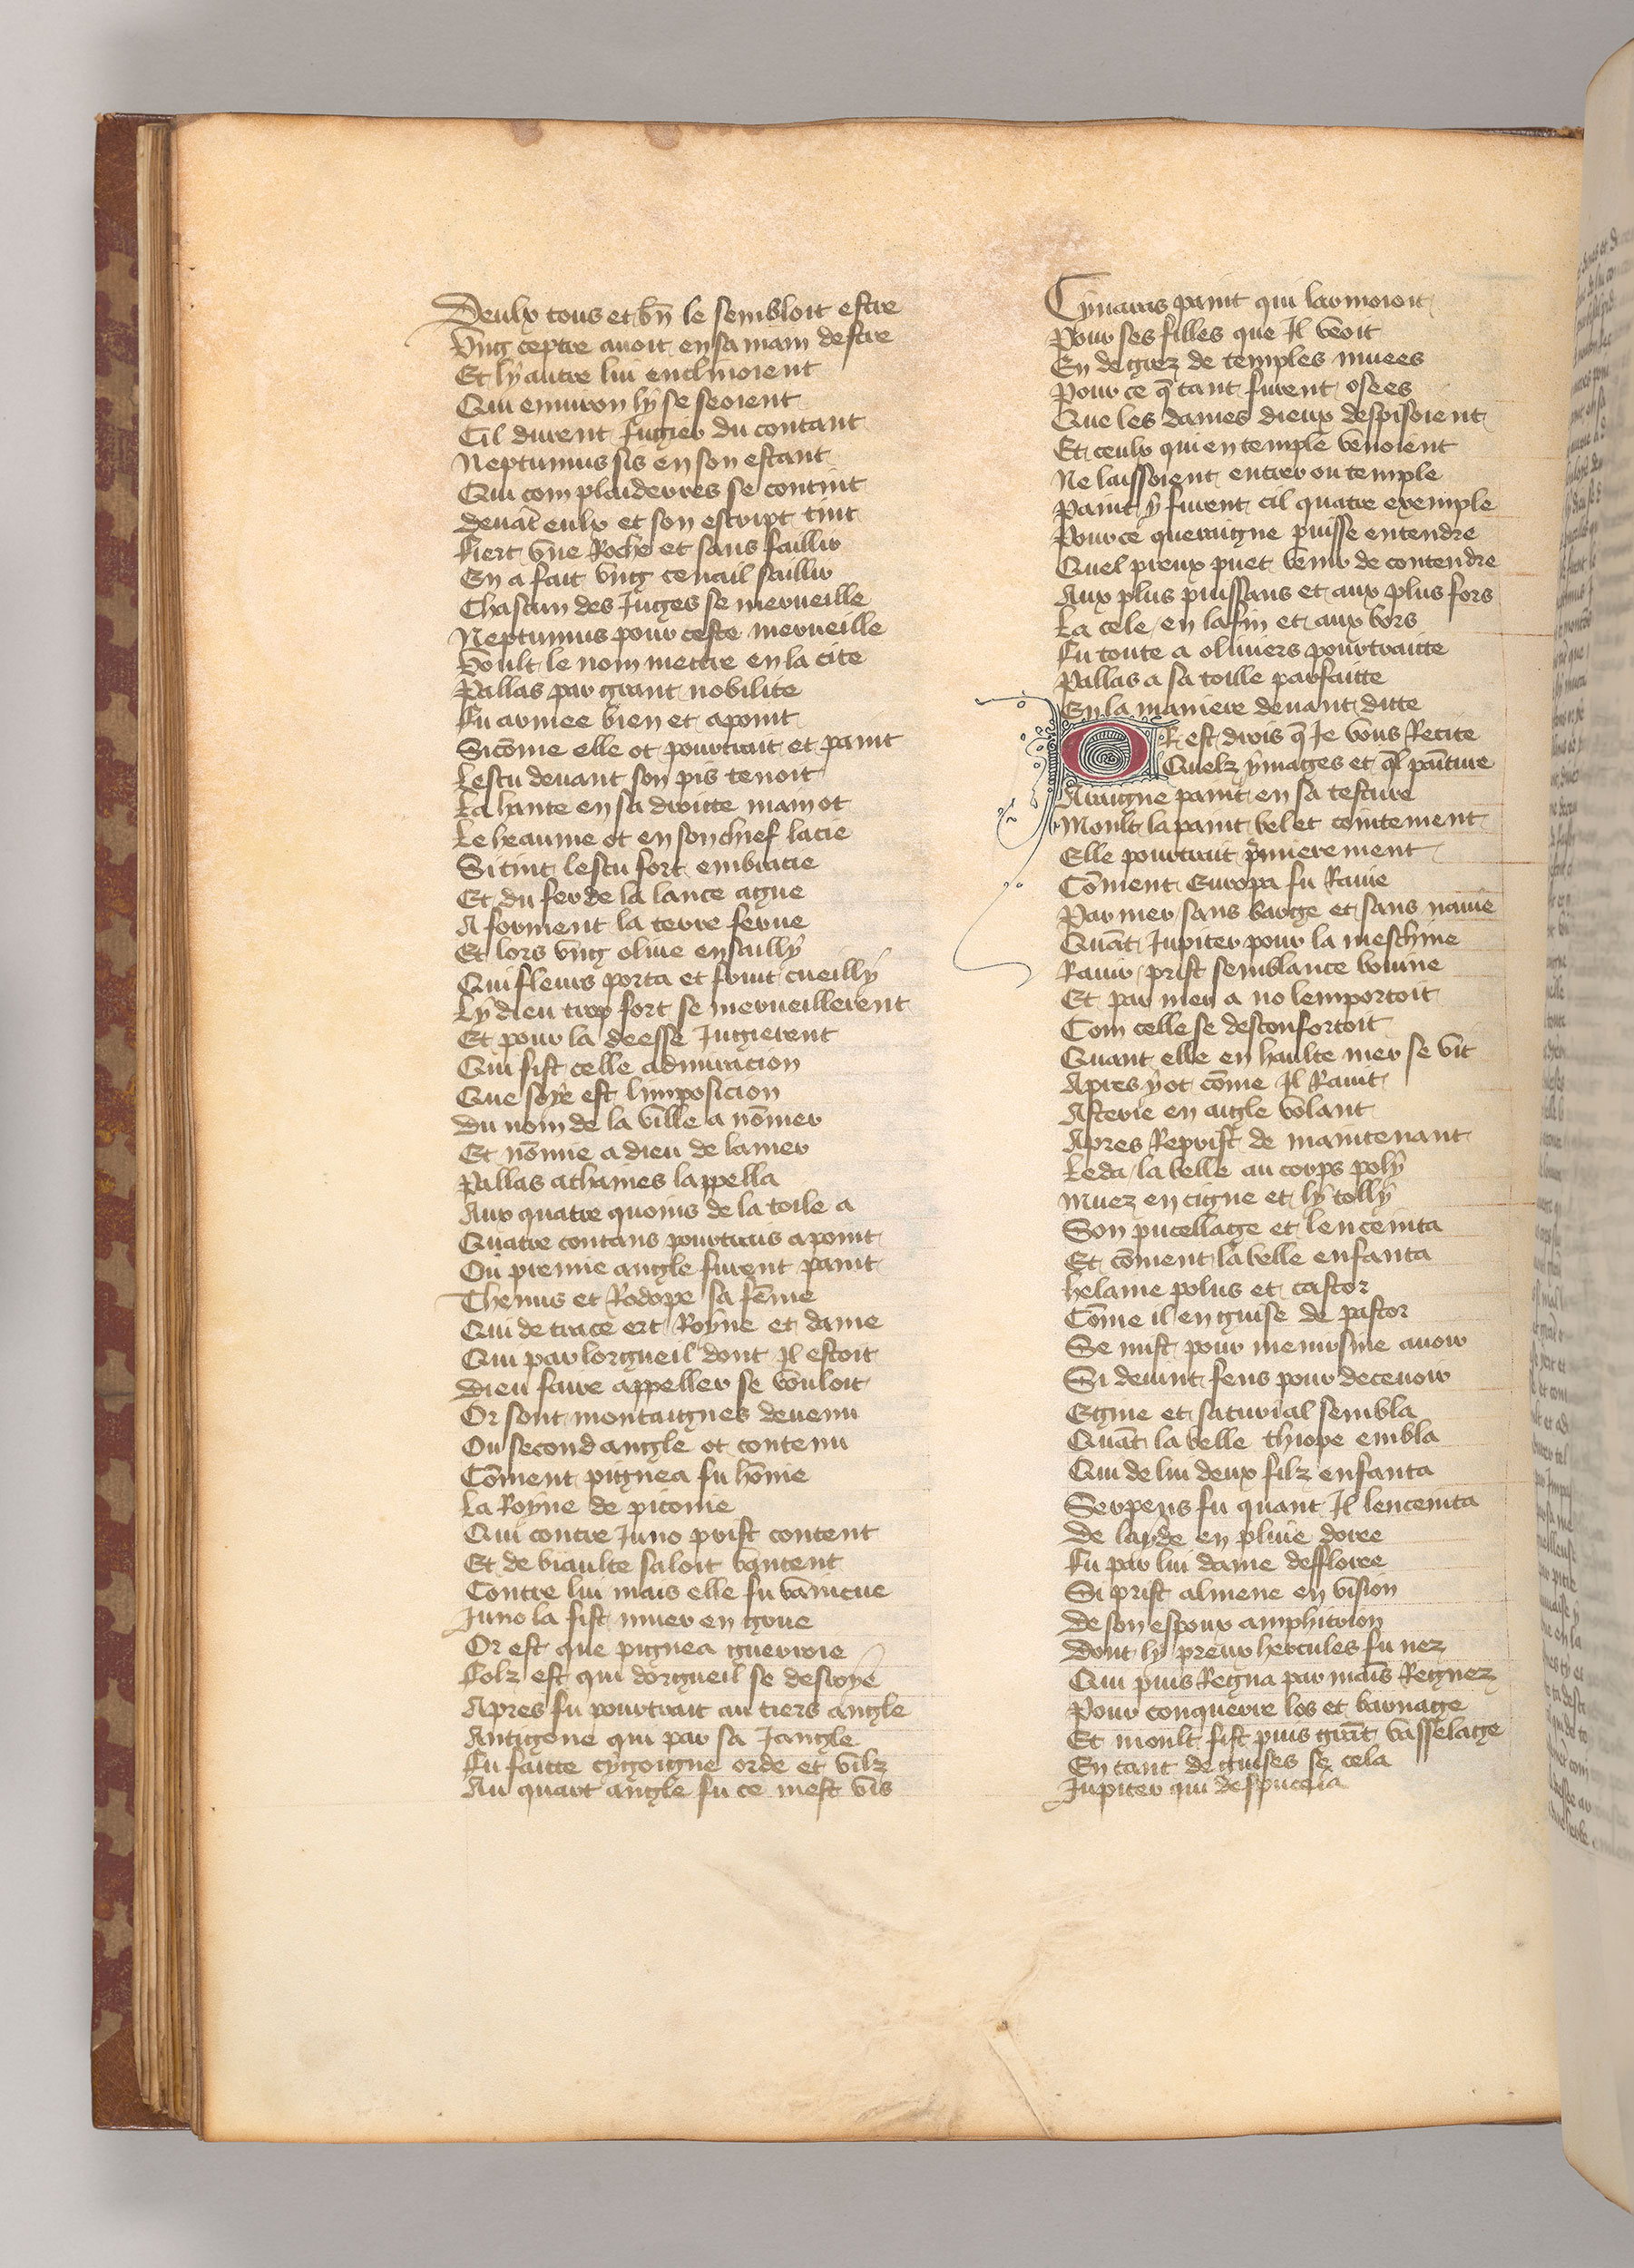 Deulx tous et bn̄ le sembloit estre
Vng ceptre auoit en sa main destre
Et ly autre lui enclinoient
Qui enuiron ly se seoient
Cil diuent Jugier du contant
Neptunius sis en son estant
Qui com plaiderres se contint
deuāt eulx et son escript tint
Fiert vne Roche et sans faillir
En a fait vng cenail saillir
Chascun des Juges se merueille
Neptunius pour ceste merueille
Voult le nom mettre en la cite
Pallas par grant nobilite
Fu armee bien et a point
Sicōme elle ot pourtrait et paint
Lescu deuant son pis tenoit
La hante en sa droitte main ot
Le heaume ot en son chief lacie
Si tint lescu fort embracie
Et du fer de la lance ague
A forment la terre ferue
Et lors vng oliue en sailly
Qui fleurs porta et fruit cueilly
Ly dieu trop fort se merueillerent
Et pour la deesse Jugierent
Qui fist celle admiracion
Que soye est limposicion
Du nom de la ville a nōmer
Et nōmie a dieu de la mer
Pallas athaines lappella
Aux quatre quoins de la toile a
Quatre contans pourtrais a point
Ou premie angle furent paint
Themus et Rodope sa fēme
Qui de trace ert Royne et dame
Qui par lorgueil dont Il estoit
Dieu faire appeller se vouloit
Or sont montaignes deuenu
Ou second angle ot contenu
Cōment pignea fu hōnie
La Royne de piconie
Qui contre Juno prist content
Et de biaulte saloit vantent
Contre lui mais elle fu vaincue
Juno la fist muer en grue
Or est que pignea guerroie
Folz est qui dorgueil se desroye
Apres fu pourtrait au tiers angle
Antigone qui par sa Jangle
Fu faitte cygoigne orde et vilz
Au quart angle fu ce mest vis
Cynaras paint qui larmoioit
Pour ses filles que Il veoit
En degrez de temples muees
Pour ce q̄ tant furent osees
Que les dames dieux despisoient
Et ceulx qui en temple venoient
Ne laissoient entrer ou temple
Paint y furent cil quatre exemple
Pour ce queraigne puisse entendre
Quel preux puet venir de contendre
Aux plus puissans et aux plus fors
La cele en la fin et aux bors
Fu toute a oliuiers pourtraitte
Pallas a sa toille parfaitte
En la maniere deuant ditte
OR est drois q̄ Je vous Recite
Quelz ymages et q̄l painture
Araigne paint en sa testure
Moult la paint bel et cointement
Elle pourtrait p̄mierement
Cōment Europa fu Rauie
Par mer sans barge et sans nauie
Quāt Jupiter pour la meschine
Rauir prist semblance bouine
Et par mer a no lemportoit
Com celle se desconfortoit
Quant elle en haulte mer se vit
Apres y ot cōme Il Rauit
Asterie en aigle volant
Apres Reprist de maintenant
Leda la belle au corps poly
Muez en cigne et ly tolly
Son pucellage et lenceinta
Et cōment la belle enfanta
helaine polus et castor
Cōme il en guise de pastor
Se mist pour menusine auoir
Si deuint feus pour deceuoir
Egine et saturial sembla
Quāt la belle thiope embla
Qui de lui deux filz enfanta
Serpens fu quant Il lenceinta
De layde en pluie doree
Fu par lui dame deffloree
Si prist almene en vision
De son espoux amphitrion
Dont ly preux hercules fu nez
Qui puis Regna par mais Regnez
Pour conquerre los et barnage
Et moult fist puis grāt vasselage
En tant de guises se cela
Jupiter qui despucela